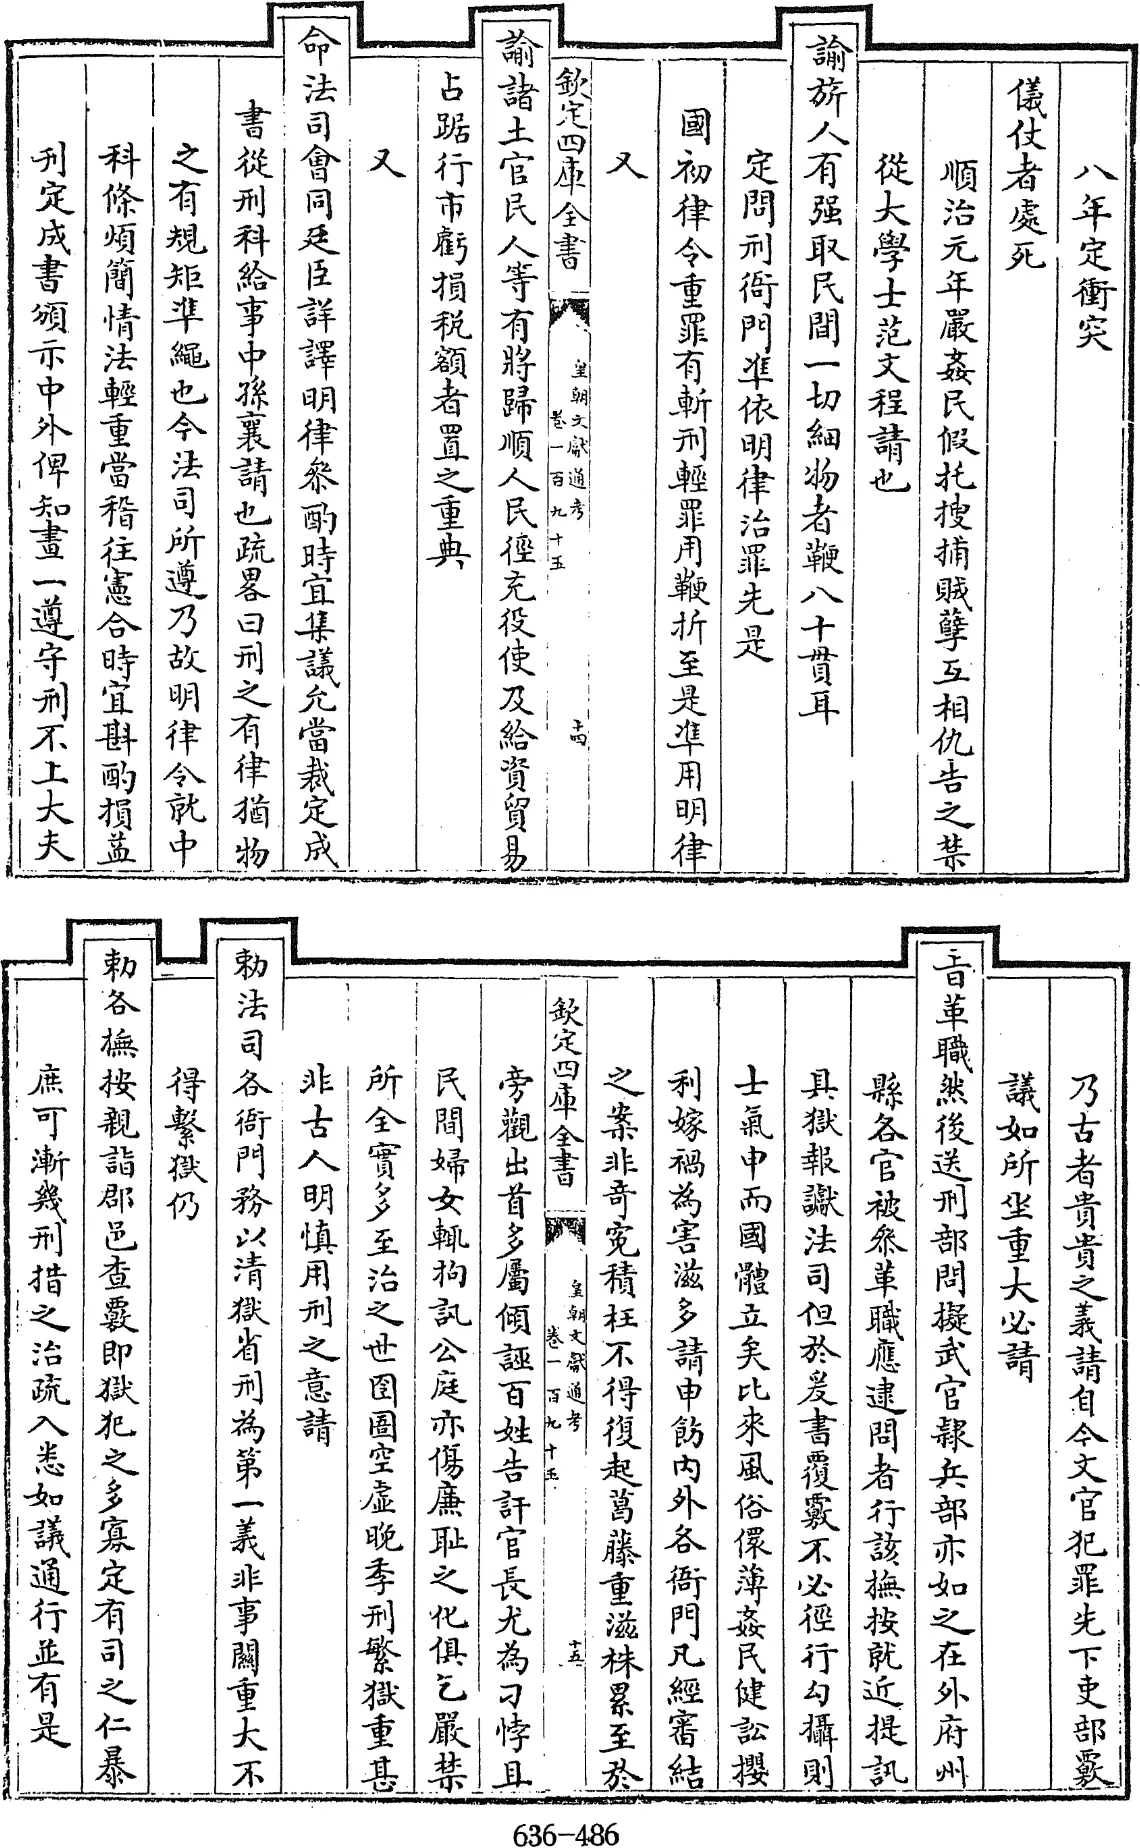 八年定衝突
儀仗者處死
順治元年嚴姦民假托搜捕賊孽互相仇告之禁
從大學士范文程請也
諭旂人有强取民間一切細物者鞭八十貫耳
定問刑衙門准依明律治罪先是
國初律令重罪有斬刑輕罪用鞭折至是準用明律
又
欽定四庫全書
皇朝文獻通考
卷一百九十五
十四
諭諸土官民人等有將歸順人民徑充役使及給資貿易
占踞行市虧損税額者置之重典
又
命法司會同廷臣詳譯明律叅酌時宜集議允當裁定成
書從刑科給事中孫襄請也疏畧曰刑之有律猶物
之有規矩準繩也今法司所遵乃故明律令就中
科條煩簡情法輕重當稽往憲合時宜斟酌損益
刋定成書頒示中外俾知畫一遵守刑不上大夫
乃古者貴貴之義請自今文官犯罪先下吏部覈
議如所坐重大必請
㫖革職然後送刑部問擬武官隸兵部亦如之在外府州
縣各官被叅革職應逮問者行該撫按就近提訊
具獄報讞法司但於爰書覆覈不必徑行勾攝則
士氣申而國體立矣比來風俗儇薄姦民健訟攖
利嫁禍為害滋多請申飭内外各衙門凡經審結
之案非竒寃積枉不得復起葛藤重滋株累至於
欽定四庫全書
皇朝文獻通考
卷一百九十五
十五
旁觀出首多屬傾誣百姓告訐官長尤為刁悖且
民間婦女輒拘訊公庭亦傷廉恥之化俱乞嚴禁
所全實多至治之世囹圄空虛晚季刑繁獄重甚
非古人明慎用刑之意請
勅法司各衙門務以清獄省刑為第一義非事關重大不
得繫獄仍
勅各撫按親詣郡邑查覈即獄犯之多寡定有司之仁暴
庶可漸幾刑措之治疏入悉如議通行並有是
636-486